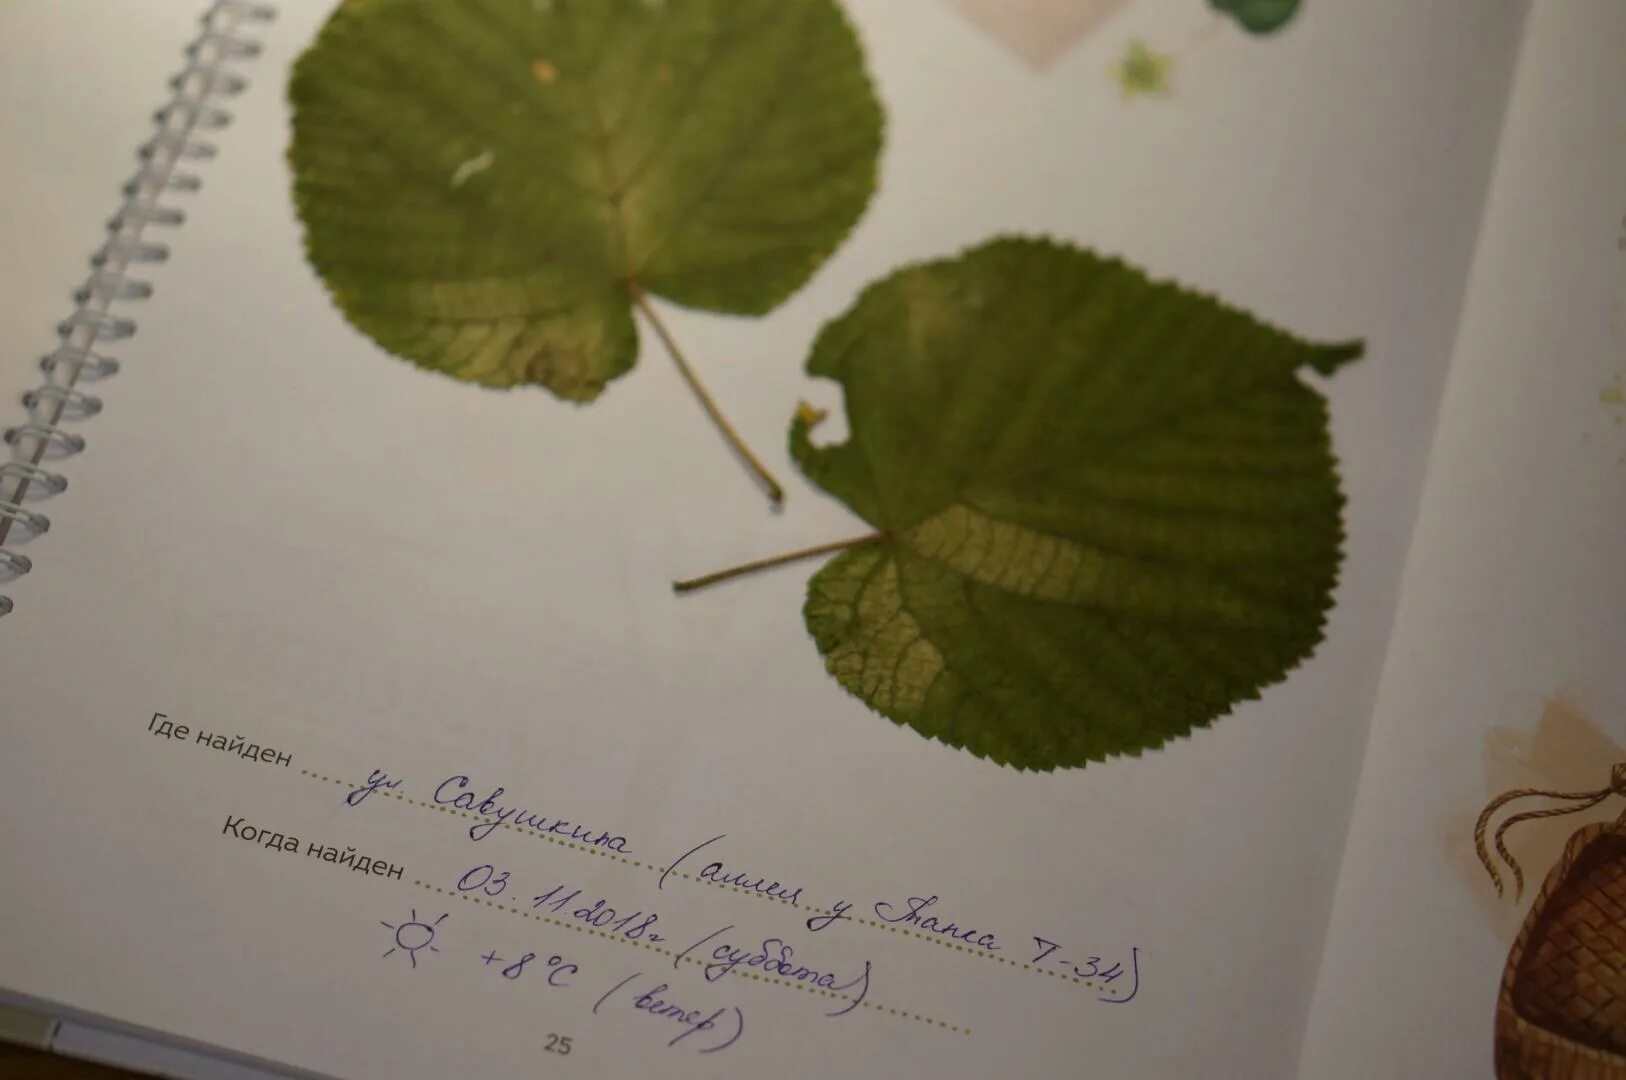 Где найден ул. Савушкина (аллея у Танка Т-34)
Когда найден 03.11.2018г (суббота)
+8°С (ветер)
25